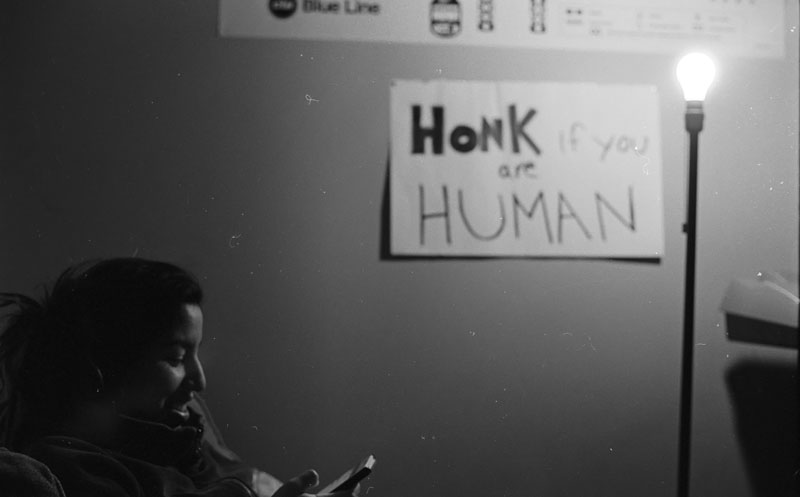 Blue Line
HONK if you
are
HUMAN